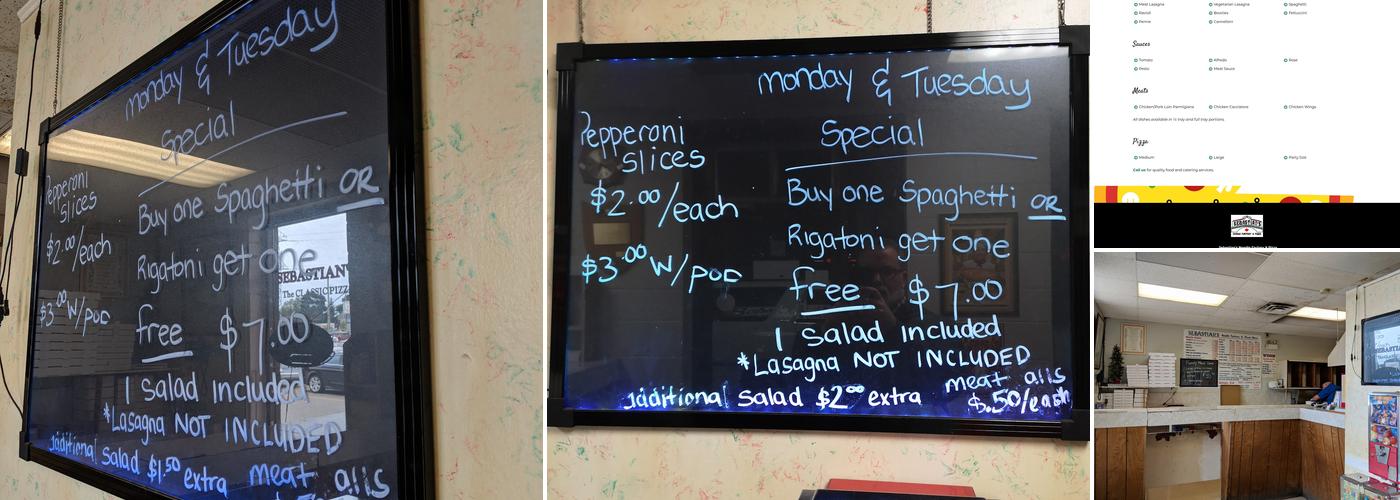 Monday & Tuesday
Special
Pepperoni
slices
$2.00/each
$3.00 w/pop
Buy one Spaghetti OR
Rigatoni get one
free $7.00
1 salad included
*Lasagna NOT INCLUDED
additional salad $1.50 extra
meat
SEBASTIAN'S
The CLASSIC PIZZ
monday & Tuesday
Special
Pepperoni
slices
$2.00/each
$3.00 w/pop
Buy one Spaghetti OR
Rigatoni get one
free $7.00
1 salad included
*Lasagna NOT INCLUDED
additional salad $2.00 extra
meat
$.50/each
Meat Lasagna
Vegetarian Lasagna
Spaghetti
Ravioli
Fettuccini
Penne
Cannelloni
Sauces
Tomato
Alfredo
Rose
Pesto
Meat Sauce
Meats
Chicken/Pork Loin Parmigiana
Chicken Cacciatore
Chicken Wings
All dishes available in ½ tray and full tray portions.
Pizza
Medium
Large
Party Size
Call us for quality food and catering services.
SEBASTIAN'S